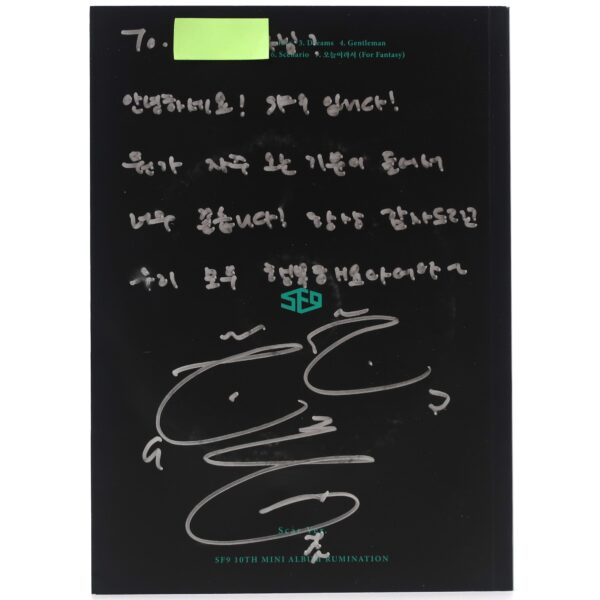 To. 님?
3. Dreams 4. Gentleman
6. Scenario 7. 오늘이라서 (For Fantasy)
안녕하세요! 입니다!
뭔가 자주 오는 기분이 들어서
너무 좋습니다! 항상 감사드리고
우리 모두
SF9
Scar Ver.
SF9 10TH MINI ALBUM RUMINATION